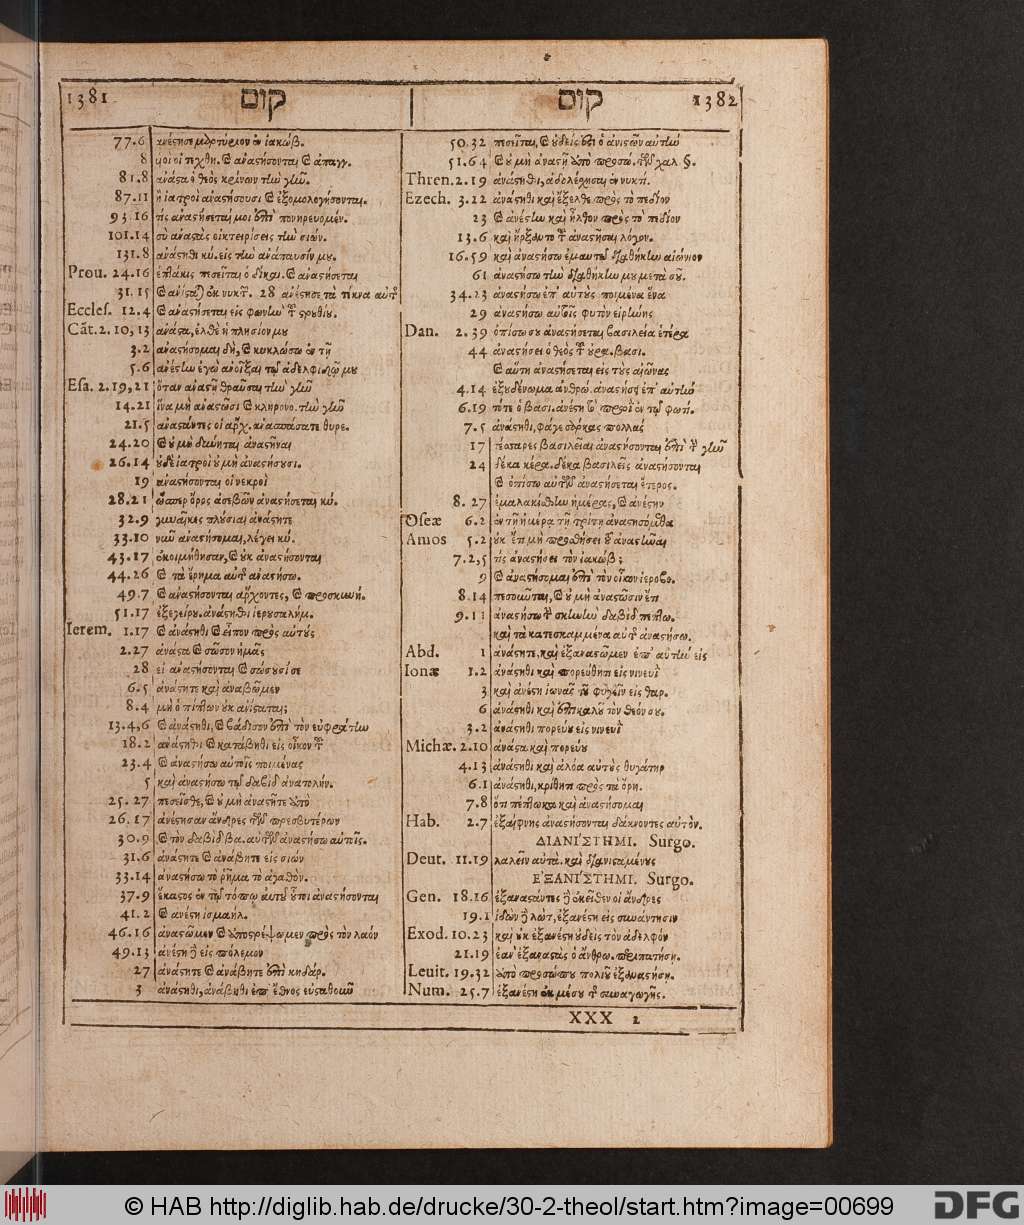 1381 קום | קום 1382
77.6 ἀνέστησε μαρτύριον ἐν ἰακώβ.
8 υἱοὶ οἱ τεχθη. καὶ ἀναστήσονται καὶ ἀπαγγ.
81.8 ἀνάστα ὁ θεὸς κρίνων τὴν γῆν.
87.11 ἢ ἰατροὶ ἀναστήσουσι καὶ ἐξομολογήσονται.
93.16 τίς ἀναστήσεταί μοι ἐπὶ πονηρευομέν.
101.14 σὺ ἀναστὰς οἰκτειρήσεις τὴν σιών.
131.8 ἀνάστηθι κύ. εἰς τὴν ἀνάπαυσίν μου.
Prou. 24.16 ἑπτάκις πεσεῖται ὁ δίκαι. καὶ ἀναστήσεται
31.15 καὶ ἀνίσταται ἐκ νυκτ. 28 ἀνέστησε τὰ τέκνα αὐτῆς
Eccles. 12.4 καὶ ἀναστήσεται εἰς φωνὴν τοῦ στρουθίου.
Cãt. 2.10,13 ἀνάστα, ἐλθὲ ἡ πλησίον μου
3.2 ἀναστήσομαι δὴ, καὶ κυκλώσω ἐν τῇ
5.6 ἀνέστην ἐγὼ ἀνοῖξαι τῷ ἀδελφιδῷ μου
Esa. 2.19,21 ὅταν ἀναστῇ θραῦσαι τὴν γῆν
14.21 ἵνα μὴ ἀναστῶσι καὶ κληρονο. τὴν γῆν
21.5 ἀναστάντες οἱ ἄρχ. ἑτοιμάσατε θυρε.
24.20 καὶ οὐ μὴ δύνηται ἀναστῆναι
26.14 οὐδὲ ἰατροὶ οὐ μὴ ἀναστήσουσι.
19 ἀναστήσονται οἱ νεκροὶ
28.21 ὥσπερ ὄρος ἀσεβῶν ἀναστήσεται κύ.
32.9 γυναῖκες πλούσιαι ἀνάστητε
33.10 νῦν ἀναστήσομαι, λέγει κύ.
43.17 ἐκοιμήθησαν, καὶ οὐκ ἀναστήσονται
44.26 καὶ τὰ ἔρημα αὐτῆς ἀναστήσω.
49.7 καὶ ἀναστήσονται ἄρχοντες, καὶ προσκυνή.
51.17 ἐξεγείρου. ἀνάστηθι ἱερουσαλήμ.
Ierem. 1.17 καὶ ἀνάστηθι καὶ εἶπον πρὸς αὐτοὺς
2.27 ἀνάστα καὶ σῶσον ἡμᾶς
28 εἰ ἀναστήσονται καὶ σώσουσί σε
6.5 ἀνάστητε καὶ ἀναβῶμεν
8.4 μὴ ὁ πίπτων οὐκ ἀνίσταται;
13.4,6 καὶ ἀνάστηθι, καὶ βάδισον ἐπὶ τὸν εὐφράτην
18.2 ἀνάστηθι καὶ κατάβηθι εἰς οἶκον τοῦ
23.4 καὶ ἀναστήσω αὐτοῖς ποιμένας
5 καὶ ἀναστήσω τῷ δαβὶδ ἀνατολήν.
25.27 πεσεῖσθε, καὶ οὐ μὴ ἀναστῆτε ἀπὸ
26.17 ἀνέστησαν ἄνδρες τῶν πρεσβυτέρων
30.9 καὶ τὸν δαβὶδ βα. αὐτῶν ἀναστήσω αὐτοῖς.
31.6 ἀνάστητε καὶ ἀνάβητε εἰς σιών
33.14 ἀναστήσω τὸ ῥῆμα τὸ ἀγαθόν.
37.9 ἕκαστος ἐν τῷ τόπῳ αὐτοῦ οὗτοι ἀναστήσονται
41.2 καὶ ἀνέστη ἰσμαήλ.
46.16 ἀναστῶμεν καὶ ἀποστρέψωμεν πρὸς τὸν λαὸν
49.13 ἀνέστη εἰς πόλεμον
27 ἀνάστητε καὶ ἀνάβητε ἐπὶ κηδάρ.
3 ἀνάστηθι, ἀνάβηθι ἐπ' ἔθνος εὐσταθοῦν
50.32 πεσεῖται, καὶ οὐδεὶς ἔσται ὁ ἀνιστῶν αὐτὴν
51.64 καὶ οὐ μὴ ἀναστῇ ἀπὸ προσώ. τῶν χαλ §.
Thren. 2.19 ἀνάστηθι, ἀδολέχησαι ἐν νυκτί.
Ezech. 3.22 ἀνάστηθι καὶ ἔξελθε πρὸς τὸ πεδίον
23 καὶ ἀνέστην καὶ ἦλθον πρὸς τὸ πεδίον
13.6 καὶ ἤρξαντο τοῦ ἀναστῆσαι λόγον.
16.59 καὶ ἀναστήσω ἐμαυτῷ διαθήκην αἰώνιον
61 ἀναστήσω τὴν διαθήκην μου μετὰ σοῦ.
34.23 ἀναστήσω ἐπ' αὐτοὺς ποιμένα ἕνα
29 ἀναστήσω αὐτοῖς φυτὸν εἰρήνης
Dan. 2.39 ὀπίσω σου ἀναστήσεται βασιλεία ἑτέρα
44 ἀναστήσει ὁ θεὸς τοῦ οὐρα. βασι.
καὶ αὕτη ἀναστήσεται εἰς τοὺς αἰῶνας
4.14 ἐξουδένωμα ἀνθρώ. ἀναστήσει ἐπ' αὐτὴν
6.19 τότε ὁ βασι. ἀνέστη τὸ πρωῒ ἐν τῷ φωτί.
7.5 ἀνάστηθι, φάγε σάρκας πολλάς
17 τέσσαρες βασιλεῖαι ἀναστήσονται ἐπὶ τῆς γῆς
24 δέκα κέρα. δέκα βασιλεῖς ἀναστήσονται
καὶ ὀπίσω αὐτῶν ἀναστήσεται ἕτερος.
8.27 ἐμαλακίσθην ἡμέρας, καὶ ἀνέστην
Oseæ 6.2 ἐν τῇ ἡμέρᾳ τῇ τρίτῃ ἀναστησόμεθα
Amos 5.2 οὐκ ἔτι μὴ προσθήσει τοῦ ἀναστῆναι
7.2,5 τίς ἀναστήσει τὸν ἰακώβ;
9 καὶ ἀναστήσομαι ἐπὶ τὸν οἶκον ἱεροβο.
8.14 πεσοῦνται, καὶ οὐ μὴ ἀναστῶσιν ἔτι
9.11 ἀναστήσω τὴν σκηνὴν δαβὶδ πεπτω.
καὶ τὰ κατεσκαμμένα αὐτῆς ἀναστήσω.
Abd. 1 ἀνάστητε, καὶ ἐξαναστῶμεν ἐπ' αὐτὴν εἰς
Ionæ 1.2 ἀνάστηθι καὶ πορεύθητι εἰς νινευῒ
3 καὶ ἀνέστη ἰωνᾶς τοῦ φυγεῖν εἰς θαρ.
6 ἀνάστηθι καὶ ἐπικαλοῦ τὸν θεόν σου.
3.2 ἀνάστηθι πορεύου εἰς νινευῒ
Michæ. 2.10 ἀνάστα καὶ πορεύου
4.13 ἀνάστηθι καὶ ἀλόα αὐτοὺς θυγάτηρ
6.1 ἀνάστηθι, κρίθητι πρὸς τὰ ὄρη.
7.8 ὅτι πέπτωκα καὶ ἀναστήσομαι
Hab. 2.7 ἐξαίφνης ἀναστήσονται δάκνοντες αὐτόν.
ΔΙΑΝΙ´ΣΤΗΜΙ. Surgo.
Deut. 11.19 λαλεῖν αὐτὰ. καὶ διανισταμένους
Ε'ΞΑΝΙ´ΣΤΗΜΙ. Surgo.
Gen. 18.16 ἐξαναστάντες δὲ ἐκεῖθεν οἱ ἄνδρες
19.1 ἰδὼν δὲ λὼτ, ἐξανέστη εἰς συνάντησιν
Exod. 10.23 καὶ οὐκ ἐξανέστη οὐδεὶς τὸν ἀδελφόν
21.19 ἐὰν ἐξαναστὰς ὁ ἄνθρω. περιπατήσῃ.
Leuit. 19.32 ἀπὸ προσώπου πολιοῦ ἐξαναστήσῃ.
Num. 25.7 ἐξανέστη ἐκ μέσου τῆς συναγωγῆς.
XXX 2
© HAB http://diglib.hab.de/drucke/30-2-theol/start.htm?image=00699
DFG